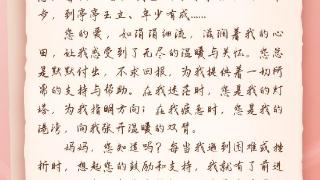 步，到亭亭玉立、年少有成……
您的爱，如涓涓细流，滋润着我的心
田，让我感受到了无尽的温暖与关怀。您总
是默默付出，不求回报，为我提供着一切所
需的支持与帮助。在我迷茫时，您是我的灯
塔，为我指明方向；在我疲惫时，您是我的
港湾，向我张开温暖的双臂。
妈妈，您知道吗？每当我遇到困难或挫
折时，想起您的鼓励和支持，我就有了前进